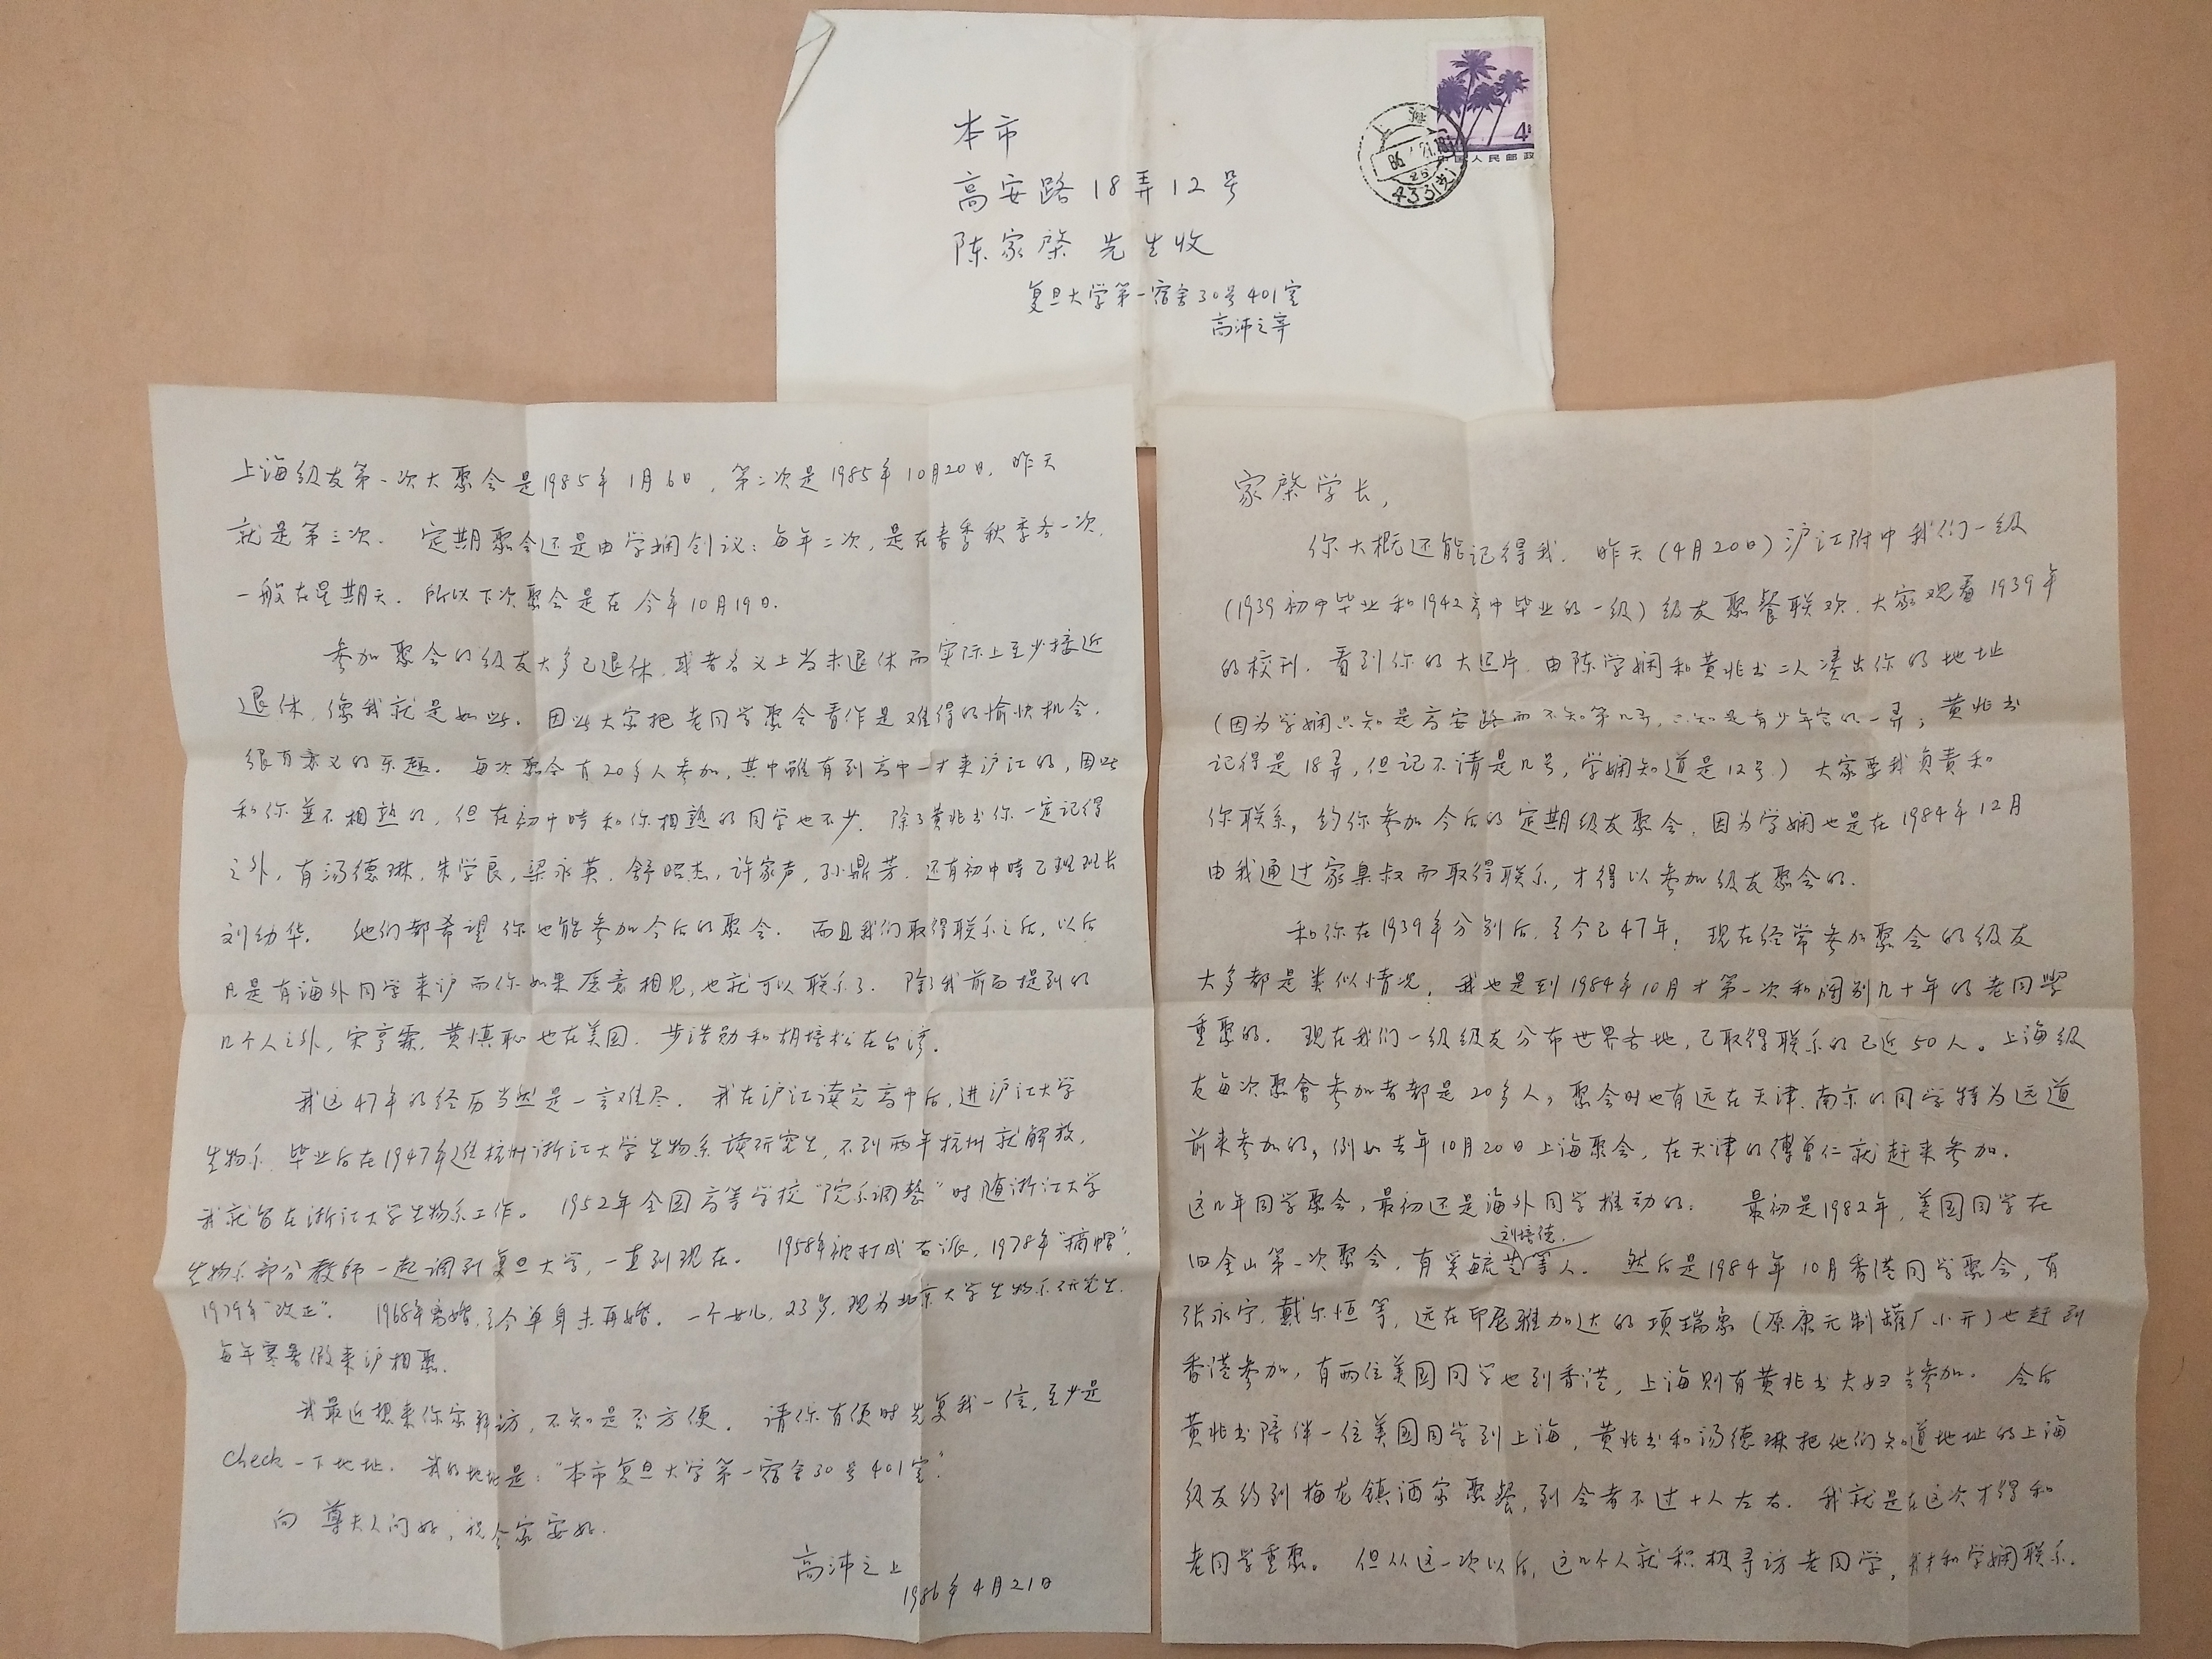 本市
高安路18弄12号
陈家棨 先生收
复旦大学第一宿舍30号401室
高沛之寄
上海
86.4.21.18
433(支)
4
中国人民邮政
家棨学长,
你大概还能记得我. 昨天(4月20日)沪江附中我们一级
(1939初中毕业和1942高中毕业的一级)级友聚餐联欢. 大家观看1939年
的校刊. 看到你的大照片. 由陈学娴和黄兆书二人凑出你的地址
(因为学娴只知是高安路而不知第几弄, 只知是有少年宫的一弄; 黄兆书
记得是18弄, 但记不清是几号, 学娴知道是12号.) 大家要我负责和
你联系, 约你参加今后的定期级友聚会. 因为学娴也是在1984年12月
由我通过家臬叔而取得联系, 才得以参加级友聚会的.
和你在1939年分别后, 至今已47年. 现在经常参加聚会的级友
大多都是类似情况. 我也是到1984年10月才第一次和阔别几十年的老同學
重聚的. 现在我们一级级友分布世界各地, 已取得联系的已近50人。上海级
友每次聚會参加者都是20多人, 聚会时也有远在天津.南京的同学特为远道
前来参加的, 例如去年10月20日上海聚会, 在天津的傅曾仁就赶来参加.
这几年同学聚会, 最初还是海外同学推动的. 最初是1982年, 美国同学在
刘培德.
旧金山第一次聚会, 有奚毓芝等人. 然后是1984年10月香港同学聚会, 有
张永宁, 戴尔恒等, 远在印尼雅加达的项瑞象(原康元制罐厂小开)也赶到
香港参加, 有两位美国同学也到香港, 上海则有黄兆书夫妇去参加. 会后
黄兆书陪伴一位美国同学到上海, 黄兆书和汤德琳把他们知道地址的上海
级友约到梅龙镇酒家聚餐, 到会者不过十人左右. 我就是在这次才得和
老同学重聚。 但从这一次以后, 这几个人就积极寻访老同学, 我才和学娴联系.
上海级友第一次大聚会是1985年1月6日, 第二次是1985年10月20日, 昨天
就是第三次. 定期聚会还是由学娴创议: 每年二次, 是在春季秋季各一次,
一般在星期天. 所以下次聚会是在今年10月19日.
参加聚会的级友大多已退休. 或者名义上尚未退休而实际上至少接近
退休, 像我就是如此. 因此大家把老同学聚会看作是难得的愉快机会.
很有意义的乐趣. 每次聚会有20多人参加, 其中虽有到高中才来沪江的, 因此
和你並不相熟的, 但在初中時和你相熟的同学也不少. 除了黄兆书你一定记得
之外, 有汤德琳, 朱学良, 梁永英, 舒昭杰, 许家声, 孙鼎芳. 还有初中時乙班班长
刘幼华. 他们都希望你也能参加今后的聚会. 而且我们取得联系之后, 以后
凡是有海外同学来沪而你如果愿意相见, 也就可以联系了. 除了我前面提到的
几个人之外, 宋亨霖, 黄慎耻也在美国. 步浩勋和胡培松在台湾.
我这47年的经历当然是一言难尽. 我在沪江读完高中后, 进沪江大学
生物系, 毕业后在1947年进杭州浙江大学生物系读研究生, 不到两年杭州就解放,
我就留在浙江大学生物系工作。 1952年全国高等学校"院系调整"时随浙江大学
生物系部分教师一起调到复旦大学, 一直到现在. 1958年被打成右派, 1978年"摘帽",
1979年"改正". 1968年离婚, 至今单身未再婚. 一个女儿, 23岁, 现为北京大学生物系研究生.
每年寒暑假来沪相聚.
我最近想来你家拜访, 不知是否方便. 请你有便时先复我一信, 至少是
check一下地址. 我的地址是: "本市复旦大学第一宿舍30号401室".
向 尊夫人问好, 祝全家安好.
高沛之上
1986年4月21日